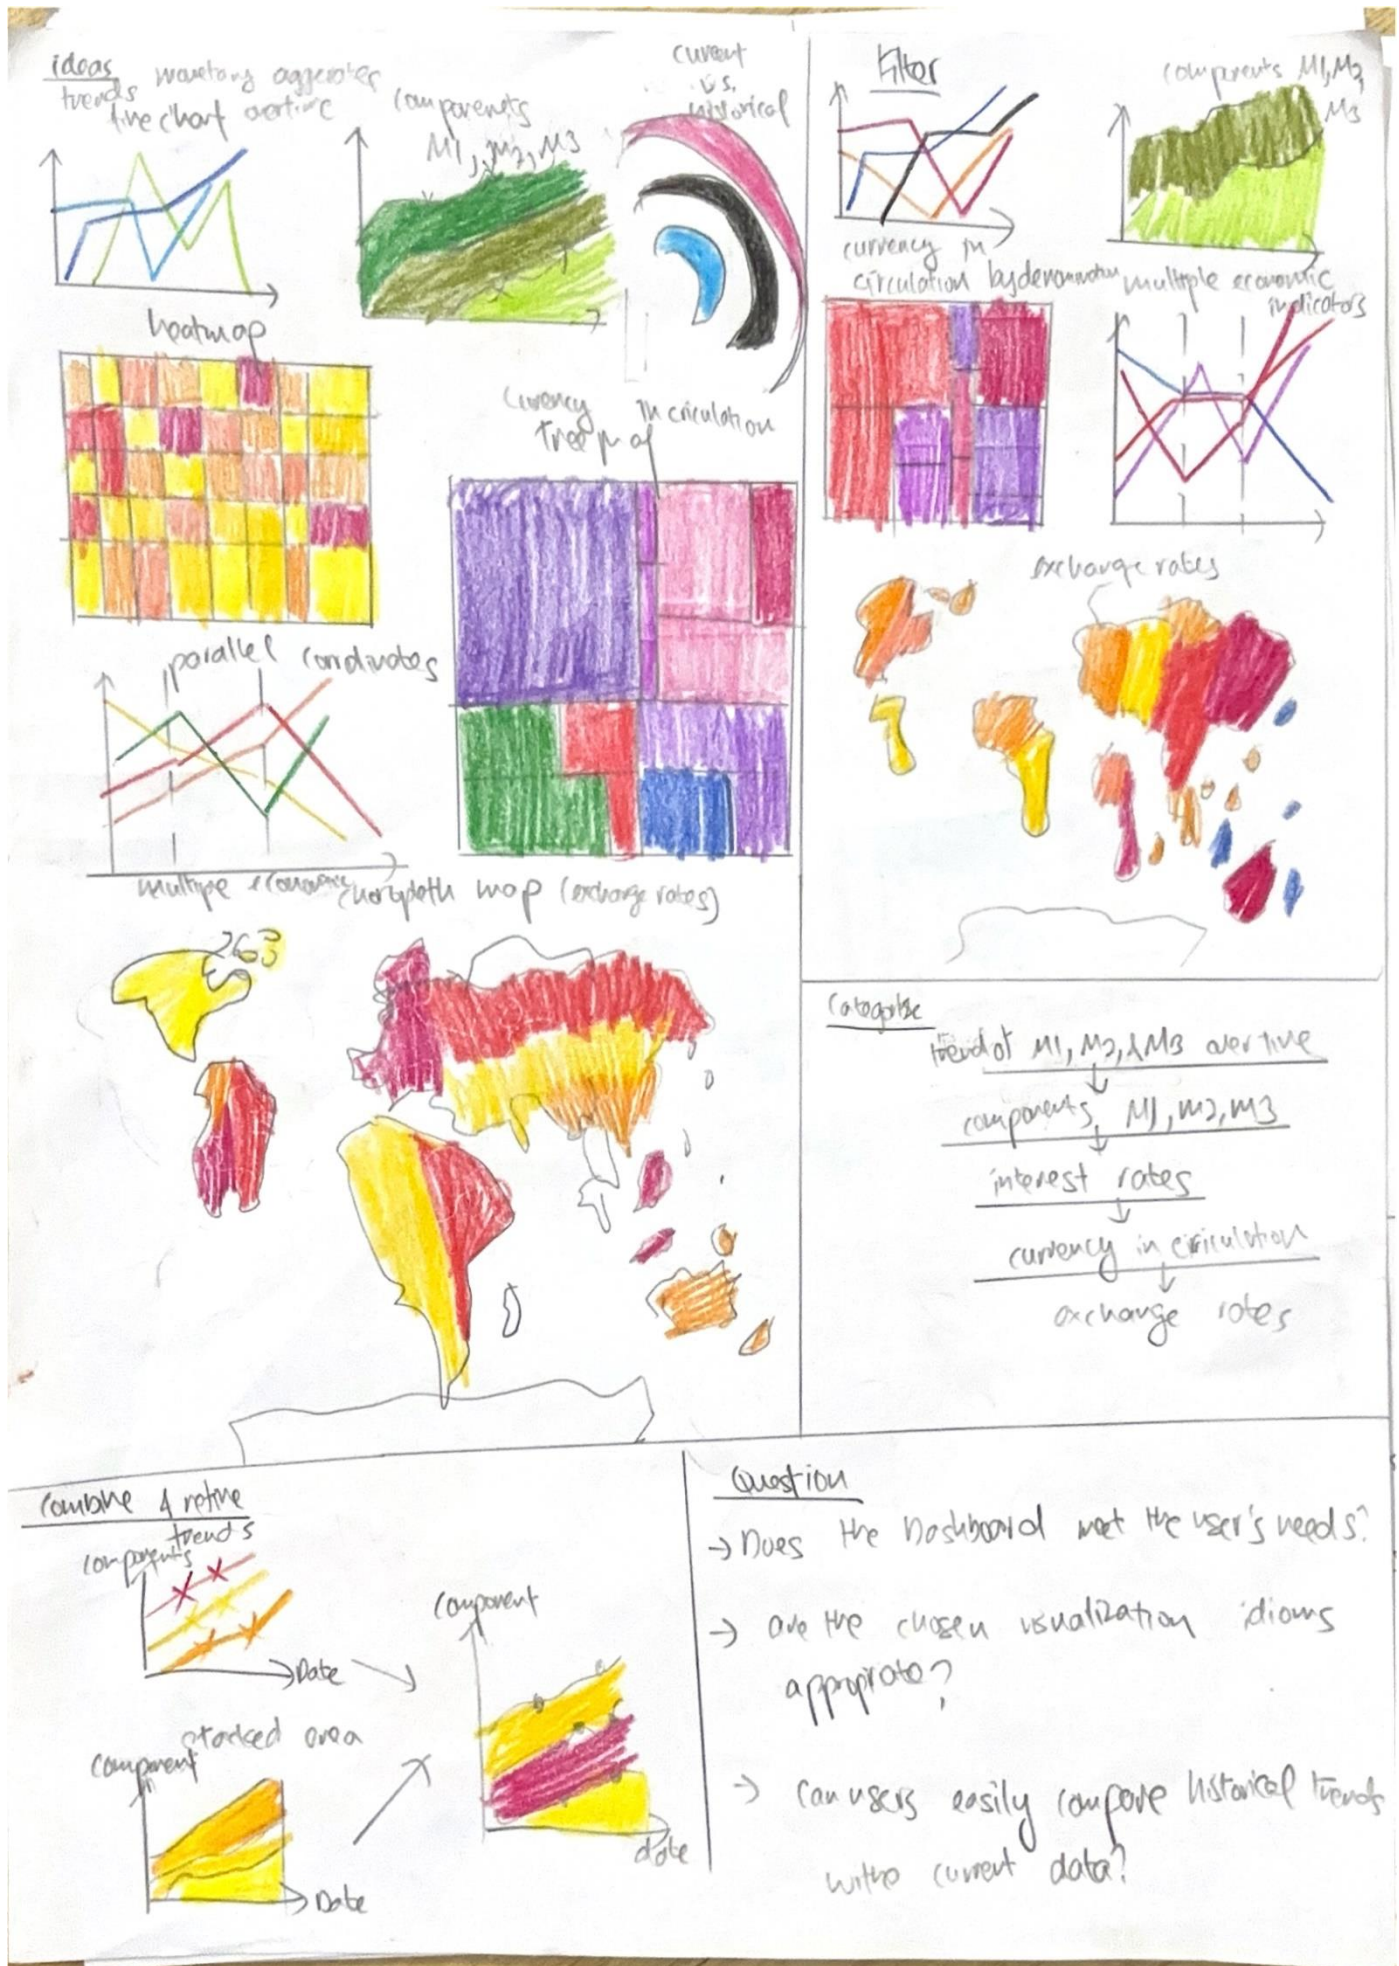 ideas
trends monetary aggerates
line chart overtime
components
M1, M2, M3
current
v.s.
historical
heatmap
currency in criculation
tree m of
parallel corrdinates
multipe economic
choropleth map (exchange rates)
Filter
components M1, M2,
M3
currency in
circulation by denomination
multiple economic
indicators
exchange rates
Categorize
trend of M1, M2, & M3 over time
components, M1, M2, M3
interest rates
currency in criculation
exchange rates
Combine & refine
trends
components
Date
stacked area
component
Date
component
date
Question
→ Does the Dashboard meet the user's needs?
→ are the chosen visualization idioms
appropriate?
→ can users easily compare historical trends
withe current data?